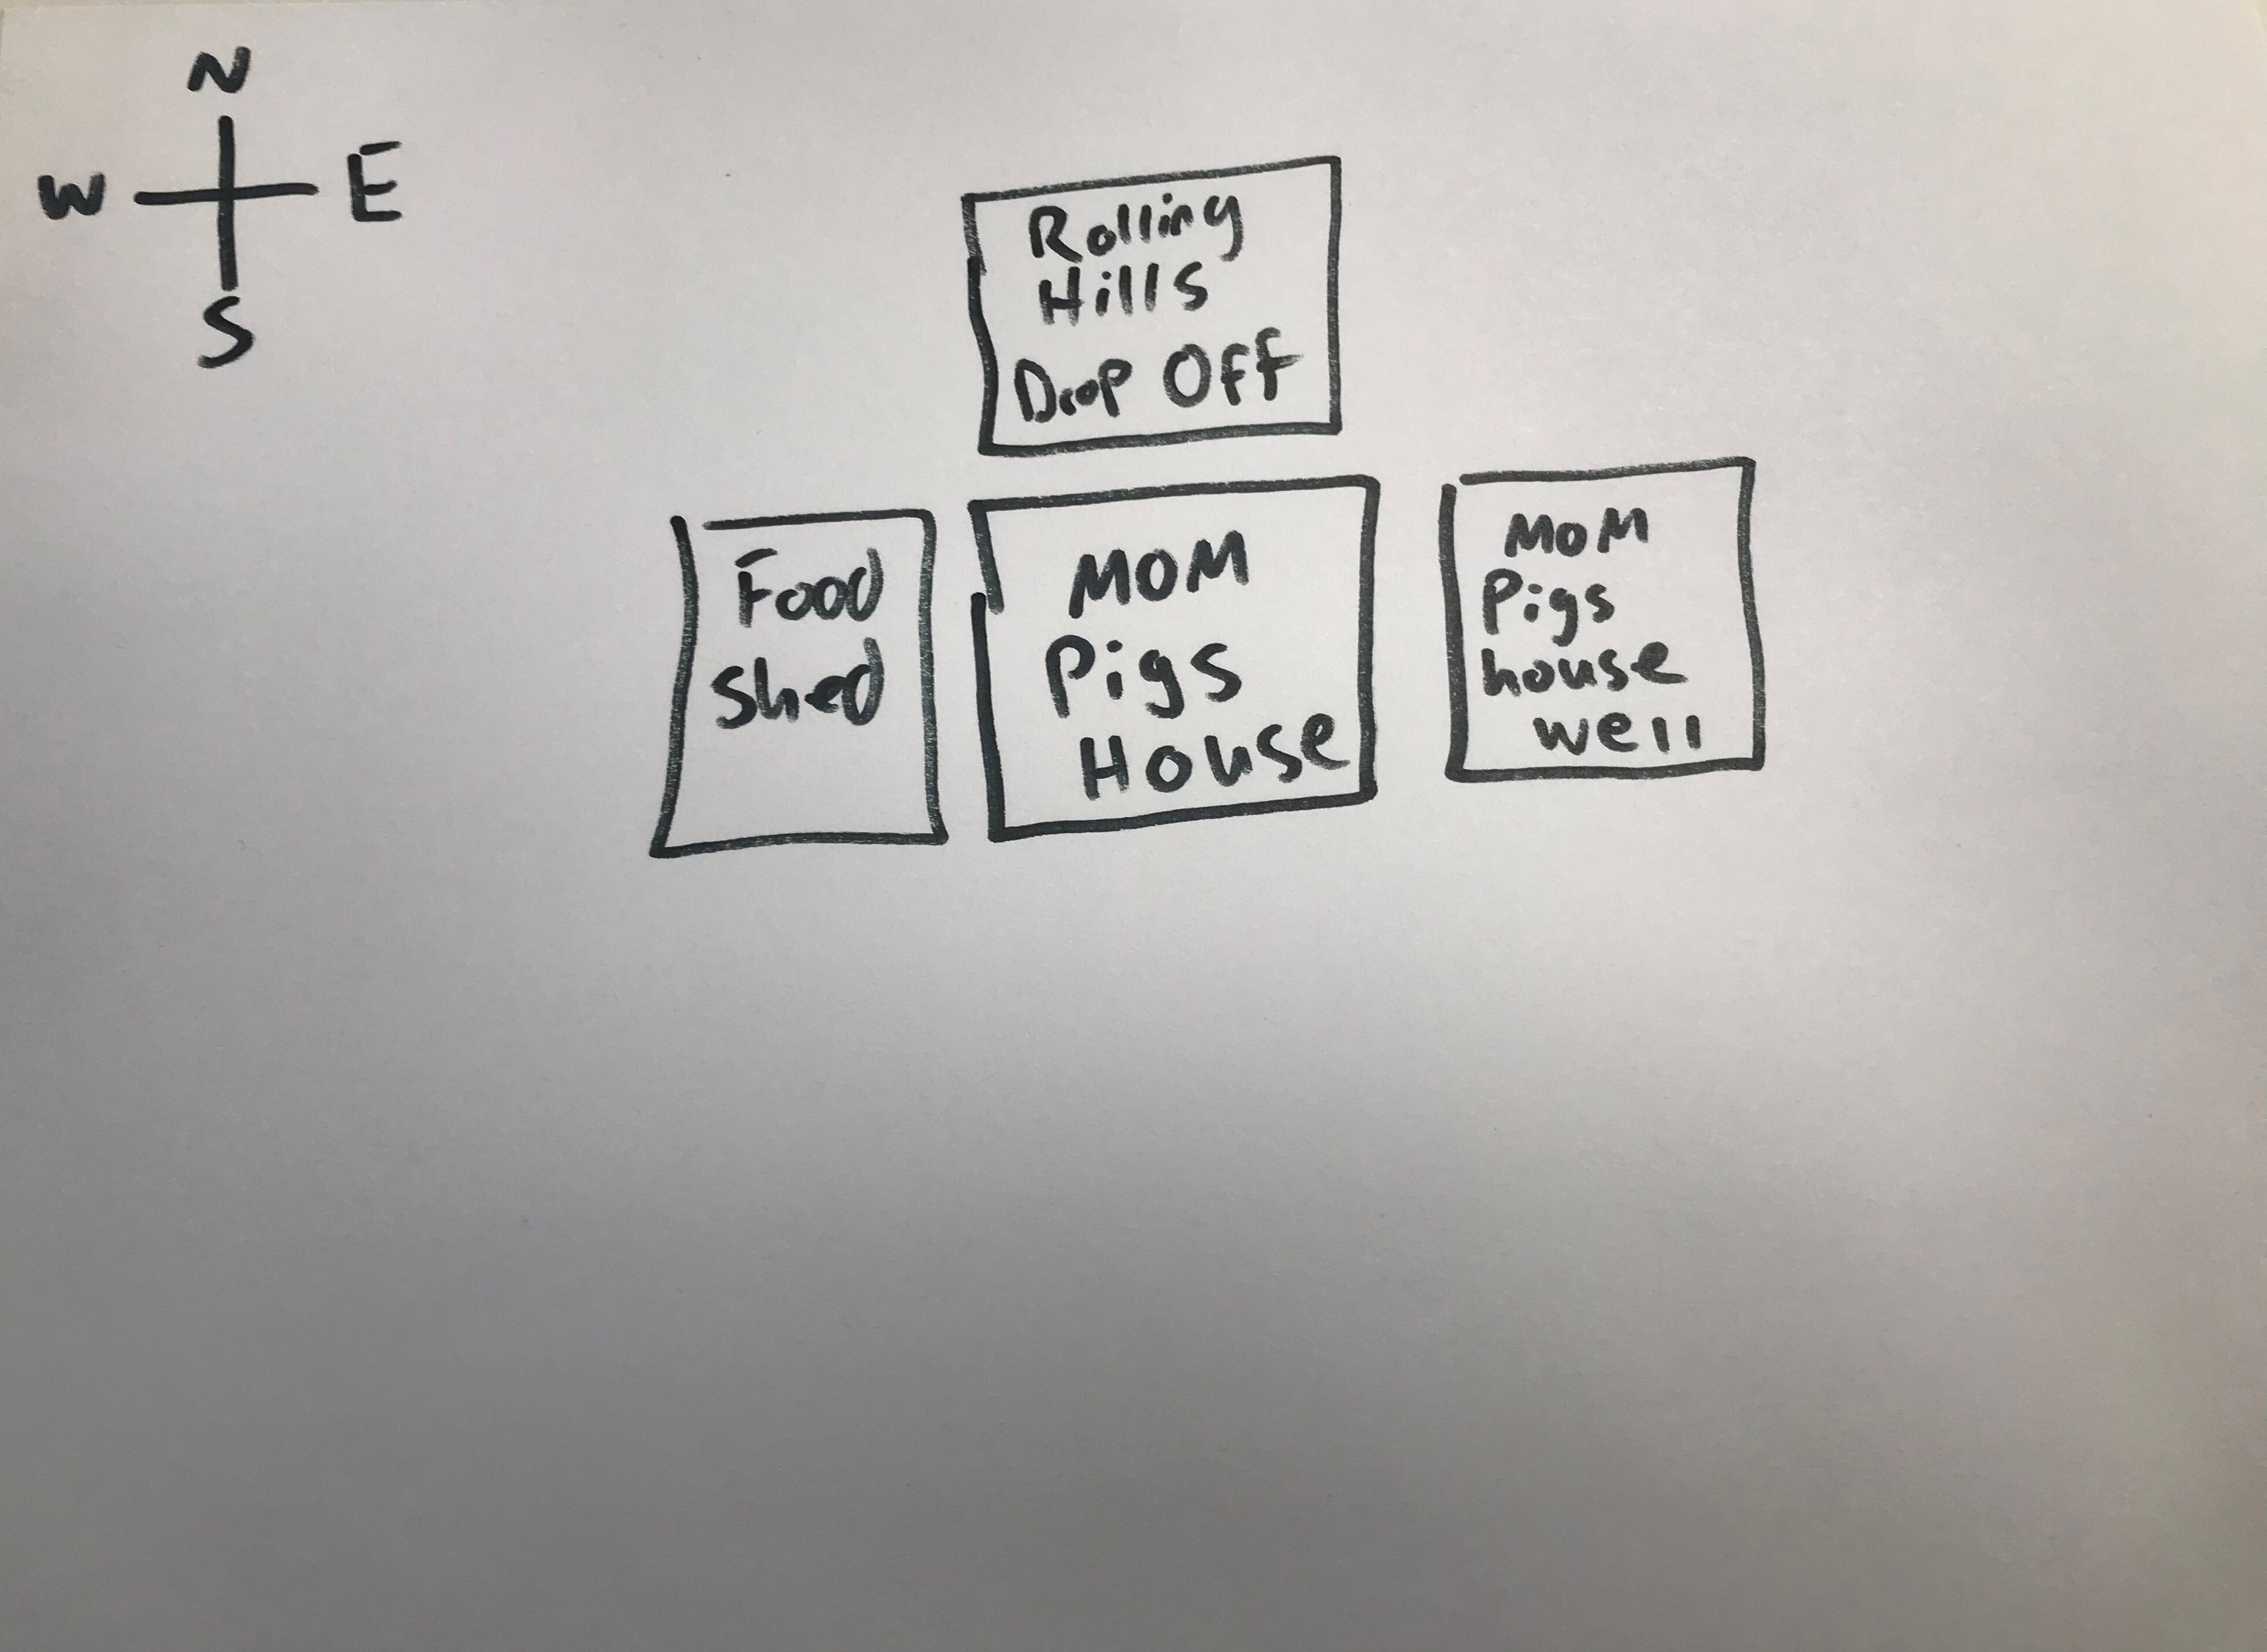 N
W E
S
Rolling
Hills
Drop OFF
Food
Shed
MOM
Pigs
House
MOM
Pigs
house
well